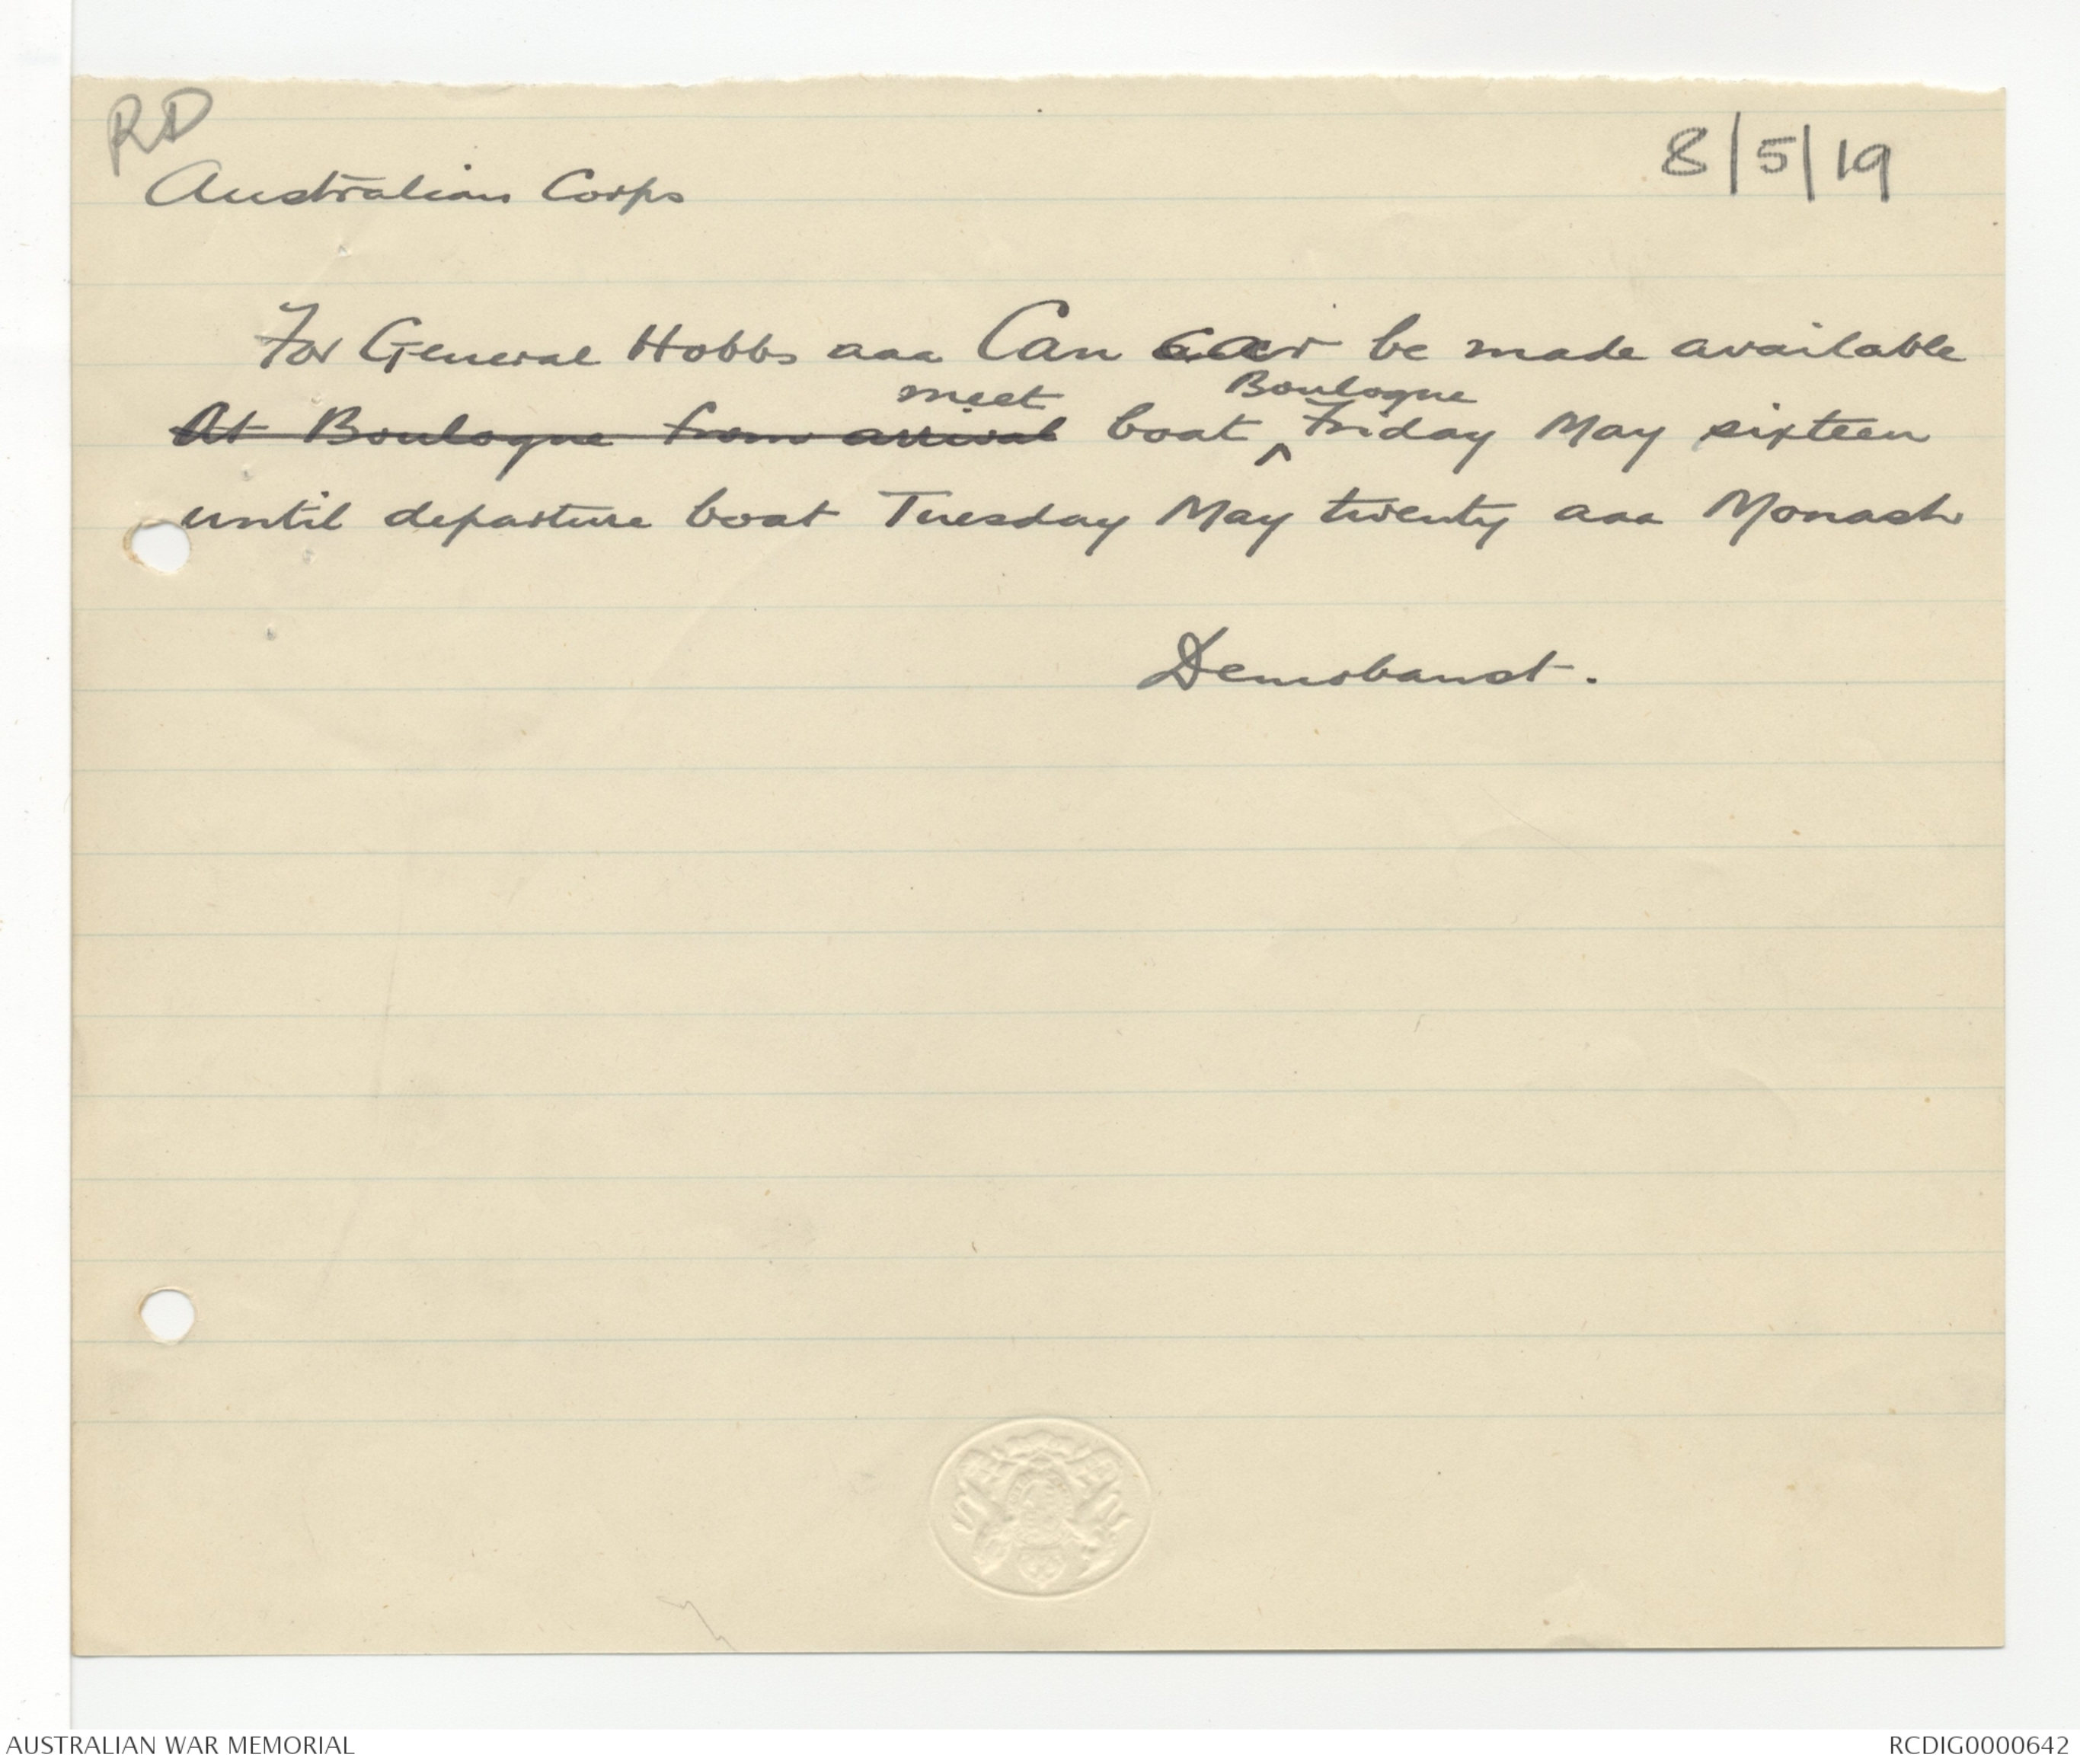 RD
8/5/19
Australian Corps
For General Hobbs aaa Can car be made available
meet Boulogne
At Boulogne from arrival boat ^ Friday May sixteen
until departure boat Tuesday May twenty aaa Monash
Demobaust.
AUSTRALIAN WAR MEMORIAL
RCDIG0000642